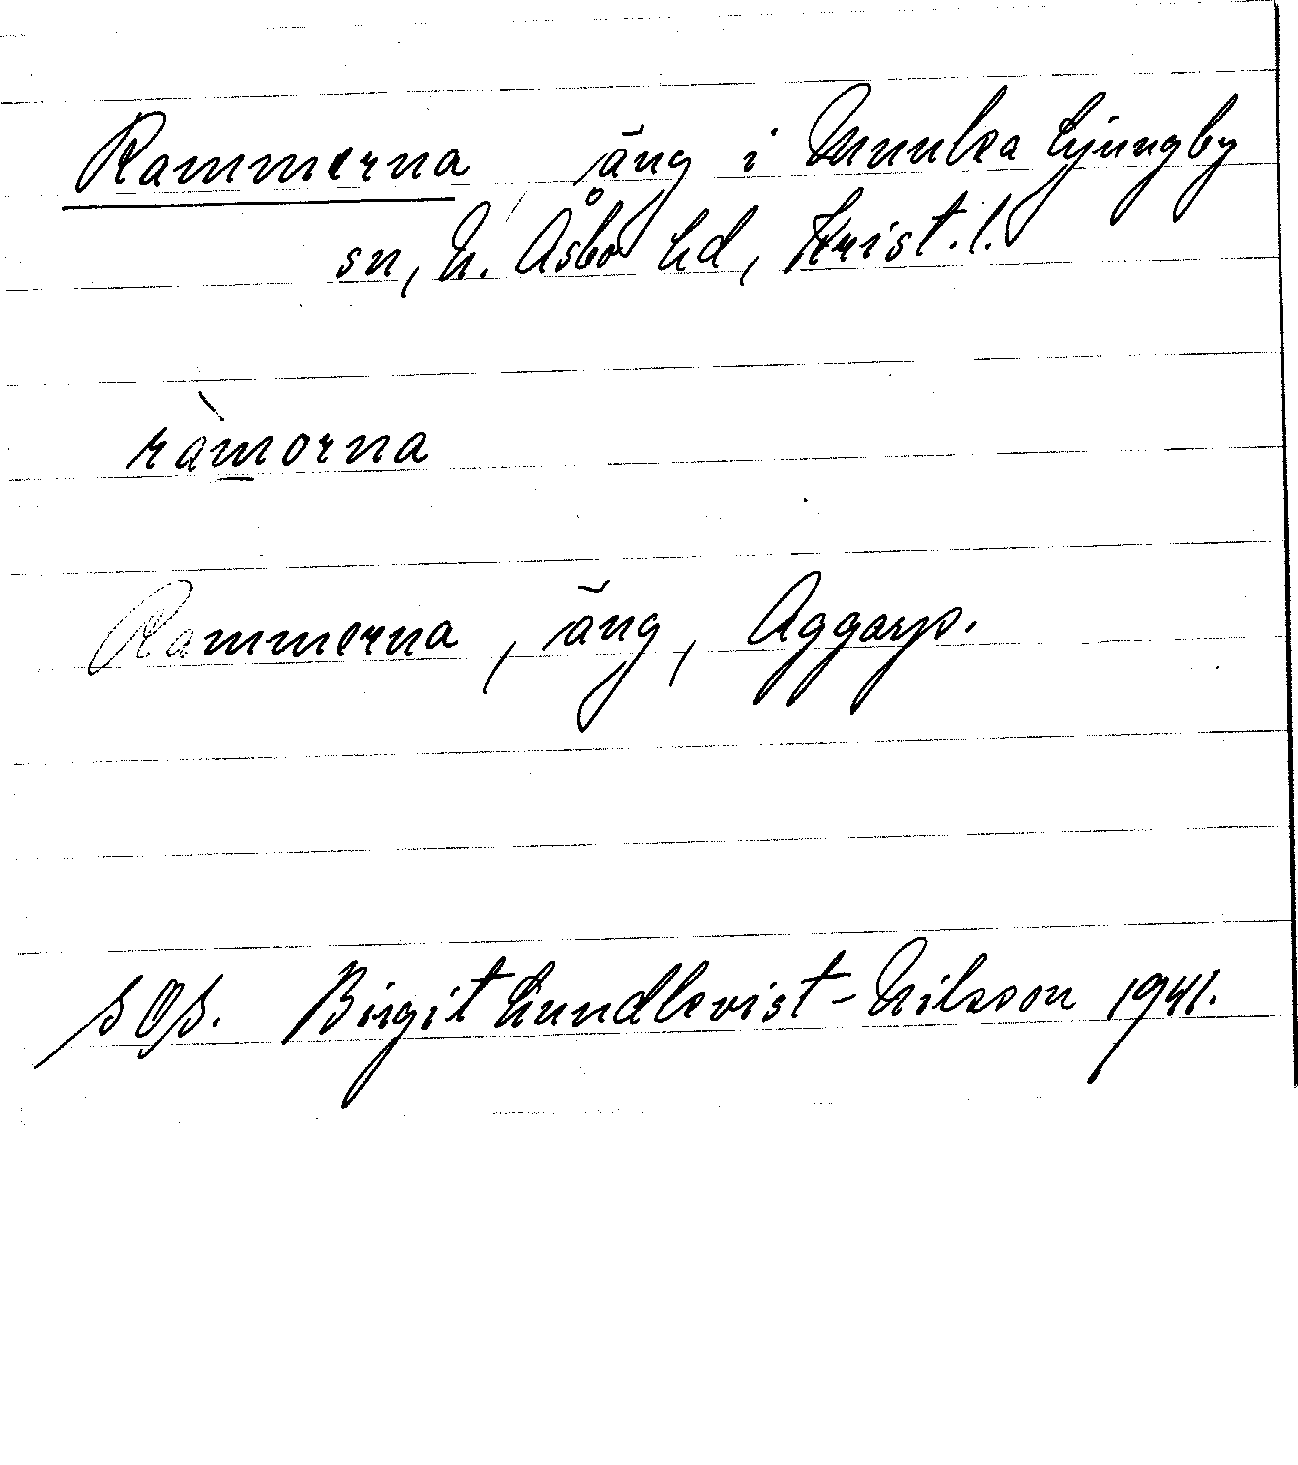 Rammerna, äng i Munka Ljungby
sn, N. Åsbo hd, Krist. l.
ràmorna
Rammerna, äng, Aggarp.
SOS. Birgit Lundkvist-Nilsson 1941.